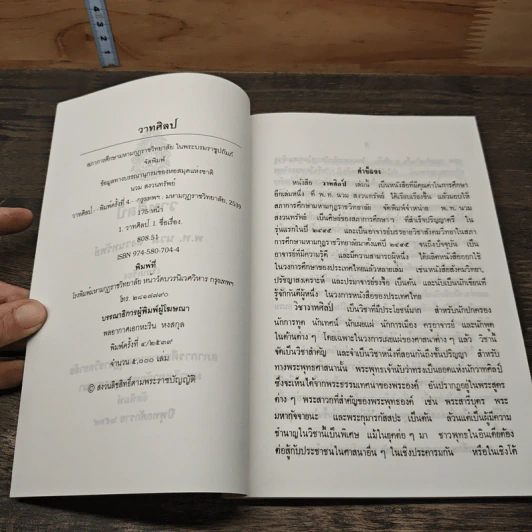 วาทศิลป์
สภาการศึกษามหามกุฏราชวิทยาลัย ในพระบรมราชูปถัมภ์
จัดพิมพ์
ข้อมูลทางบรรณานุกรมของหอสมุดแห่งชาติ
นวม สงวนทรัพย์
วาทศิลป์.-พิมพ์ครั้งที่ 4.- กรุงเทพฯ : มหามกุฏราชวิทยาลัย, 2539
175 หน้า
1. วาทศิลป์. I. ชื่อเรื่อง.
808.51
ISBN 974-580-704-4
พิมพ์ที่
โรงพิมพ์มหามกุฏราชวิทยาลัย หน้าวัดบวรนิเวศวิหาร กรุงเทพฯ
โทร. ๒๘๑๗๘๙๐
บรรณาธิการผู้พิมพ์ผู้โฆษณา
พลอากาศเอกหะริน หงสกุล
พิมพ์ครั้งที่ ๔/๒๕๓๙
จำนวน ๕,๐๐๐ เล่ม
© สงวนลิขสิทธิ์ตามพระราชบัญญัติ
คำชี้แจง
หนังสือ วาทศิลป์ เล่มนี้ เป็นหนังสือที่มีคุณค่าในการศึกษา
อีกเล่มหนึ่ง ที่ พ.ท. นวม สงวนทรัพย์ ได้เรียบเรียงขึ้น แล้วมอบให้
สภาการศึกษามหามกุฏราชวิทยาลัย จัดพิมพ์จำหน่าย พ.ท. นวม
สงวนทรัพย์ เป็นศิษย์ของสภาการศึกษาฯ ที่สำเร็จปริญญาตรี ใน
รุ่นแรกในปี ๒๔๙๕ และเป็นอาจารย์บรรยายวิชาสังคมวิทยาในสภา
การศึกษามหามกุฏราชวิทยาลัยมาตั้งแต่ปี ๒๔๙๕ จนถึงปัจจุบัน เป็น
อาจารย์ที่มีความรู้ดี และมีความสามารถผู้หนึ่ง ได้ผลิตหนังสือออกใช้
ในวงการศึกษาของประเทศไทยแล้วหลายเล่ม เช่นหนังสือสังคมวิทยา,
ปรัชญาสงเคราะห์ และประมวลธรรม เป็นต้น และนับเป็นนักเขียนที่
รู้จักกันดีผู้หนึ่ง ในวงการหนังสือของประเทศไทย
วิชาวาทศิลป์ เป็นวิชาที่มีประโยชน์มาก สำหรับนักปกครอง
นักการทูต นักเทศน์ นักเผยแผ่ นักการเมือง ครูอาจารย์ และนักพูด
ในด้านต่าง ๆ โดยเฉพาะในวงการเผยแผ่ของศาสนาต่าง ๆ แล้ว วิชานี้
จัดเป็นวิชาสำคัญ และจำเป็นวิชาหนึ่งที่สอนกันถึงขั้นปริญญา สำหรับ
ทางพระพุทธศาสนานั้น พระพุทธเจ้านับว่าทรงเป็นยอดแห่งนักวาทศิลป์
ซึ่งจะเห็นได้จากพระธรรมเทศนาของพระองค์ อันปรากฏอยู่ในพระสูตร
ต่าง ๆ พระสาวกที่สำคัญของพระพุทธองค์ เช่น พระสารีบุตร พระ
มหากัจจายนะ และพระกุมารกัสสปะ เป็นต้น ล้วนแต่เป็นผู้มีความ
ชำนาญในวิชานี้เป็นพิเศษ แม้ในยุคต่อ ๆ มา ชาวพุทธในอินเดียต้อง
ต่อสู้กับประชาชนในศาสนาอื่น ๆ ในเชิงประคารมกัน หรือในเชิงโต้